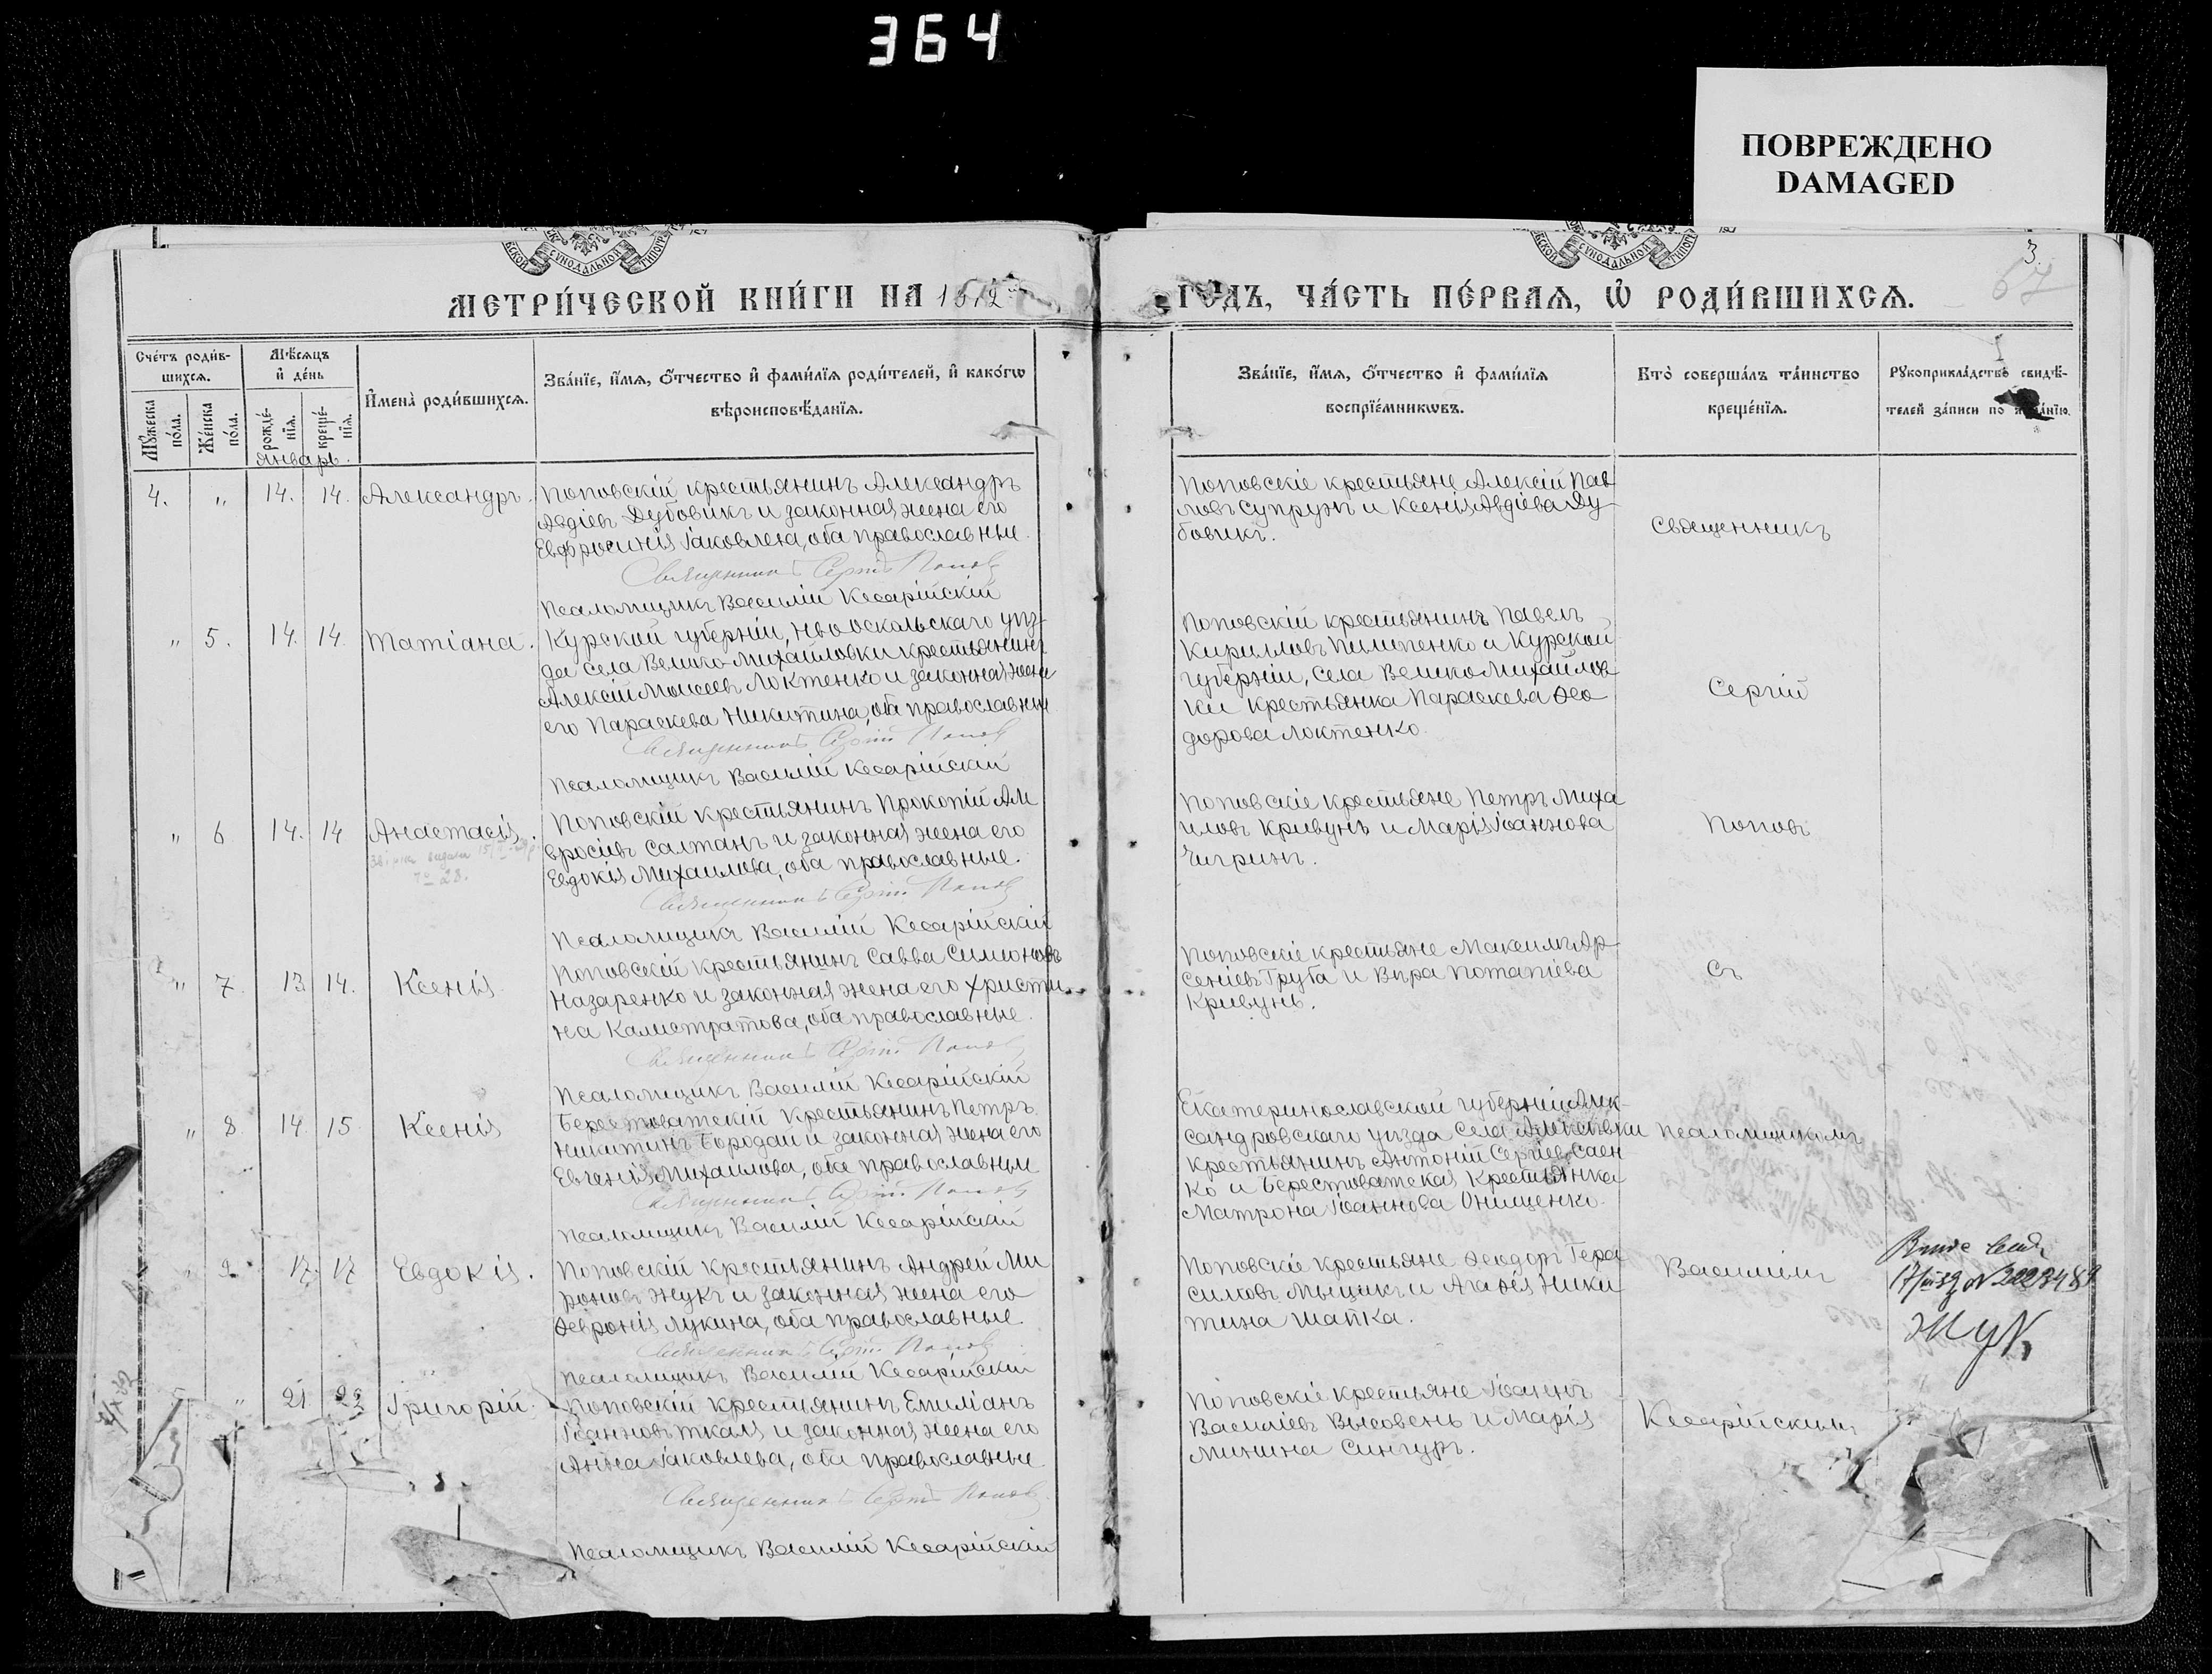 364
ПОВРЕЖДЕНО
DAMAGED
3.
67
МЕТРИ́ЧЕСКОЙ КНИ́ГИ НА 1912
ГО́ДЪ, ЧА́СТЬ ПЕ́РВАѦ, Ѡ҆ РОДИ́ВШИХСѦ.
Сче́тъ роди́в-
шихсѧ.
Мꙋ́жеска по́ла.
Же́нска по́ла.
Мѣ́сѧцъ
и҆ де́нь
рожде́-
нїѧ.
креще́-
нїѧ.
Январь.
И҆мена̀ роди́вшихсѧ.
Зва́нїе, и҆́мѧ, ѻ҆́тчество и҆ фами́лїѧ роди́телей, и҆ како́гѡ
вѣроисповѣ́данїѧ.
Зва́нїе, и҆́мѧ, ѻ҆́тчество и҆ фами́лїѧ
воспрїе́мникѡвъ.
Кто̀ соверша́лъ та́инство
креще́нїѧ.
Рꙋкоприкла́дство свидѣ́-
телей за́писи по
4. " 14. 14. Александръ.
Поповскій крестьянинъ Александръ
Авдіевъ Дубовикъ и законная жена его
Евфросинія Іаковлева, оба православные.
Священникъ Сергій Поповъ
Псаломщикъ Василій Кесарійскій
Поповскіе крестьяне Алексій Пав
ловъ Супрунъ и Ксенія Авдіева Ду-
бовикъ.
Священникъ
" 5. 14. 14. Татіана.
Курской губерніи, Новооскольскаго уѣз-
да села Велико-Михайловки крестьянинъ
Алексій Моисеевъ Локтенко и законная жена
его Параскева Никитина, оба православные
Священникъ Сергій Поповъ
Псаломщикъ Василій Кесарійскій
Поповскій крестьянинъ Павелъ
Кирилловъ Пилипенко и Курской
губерніи, села Велико Михайлов-
ки крестьянка Параскева Ѳео
дорова Локтенко.
Сергій
" 6 14. 14 Анастасія.
23.
Поповскій крестьянинъ Прокопій Ам
вросіевъ Салтанъ и законная жена его
Евдокія Михаилова, оба православные.
Священникъ Сергій Поповъ
Псаломщикъ Василій Кесарійскій
Поповскіе крестьяне Петръ Миха
иловъ Кривунъ и Марія Іоаннова
Чигринъ.
Поповъ
" 7. 13 14. Ксенія
Поповскій крестьянинъ Савва Симоновъ
Назаренко и законная жена его Христи-
на Калистратова, оба православные.
Священникъ Сергій Поповъ
Псаломщикъ Василій Кесарійскій
Поповскіе крестьяне Максимъ Ар-
сеніевъ Труба и Вѣра Потапіева
Кривунь.
Съ
" 8. 14. 15 Ксенія
Берестоватскій крестьянинъ Петръ
Никитинъ Бородай и законная жена его
Евгенія Михаилова, оба православные
Священникъ Сергій Поповъ
Псаломщикъ Василій Кесарійскій
Екатеринославской губерніи Алек-
сандровскаго уѣзда села
крестьянинъ Антоній Сергіевъ Саен
ко и Берестоватская крестьянка
Матрона Іоаннова Онищенко.
Псаломщикомъ
" 9 17. 17 Евдокія.
Поповскій крестьянинъ Андрей Ми
роновъ Жукъ и законная жена его
Ѳевронія Лукина, оба православные.
Священникъ Сергій Поповъ
Псаломщикъ Василій Кесарійскій
Поповскіе крестьяне Ѳеодоръ Гера
симовъ Мыцикъ и Агаѳія Ники
тина Шапка.
Василіемъ
Жук
" 21 22 Григорій.
Поповскій крестьянинъ Емиліанъ
Іоанновъ Ткаля и законная жена его
Анна Іаковлева, оба православные
Священникъ Сергій Поповъ
Псаломщикъ Василій Кесарійскій
Поповскіе крестьяне Іоаннъ
Василіевъ Высовень и Марія
Минина Сингуръ.
Кесарійскимъ